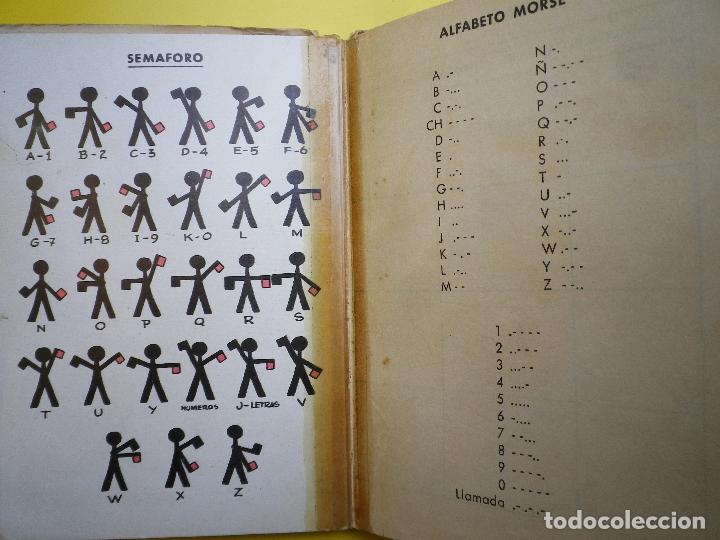 SEMAFORO
A-1 B-2 C-3 D-4 E-5 F-6
G-7 H-8 I-9 K-0 L M
N O P Q R S
T U Y NUMEROS J-LETRAS V
W X Z
ALFABETO MORSE
A .-
B -...
C -.-.
CH ----
D -..
E .
F ..-.
G --.
H ....
I ..
J .---
K -.-
L .-..
M --
N -.
Ñ --.--
O ---
P .--.
Q --.-
R .-.
S ...
T -
U ..-
V ...-
X -..-
W .--
Y -.--
Z --..
1 .----
2 ..---
3 ...--
4 ....-
5 .....
6 -....
7 --...
8 ---..
9 ----.
0 -----
Llamada -.-.-
todocoleccion
todocoleccion.net